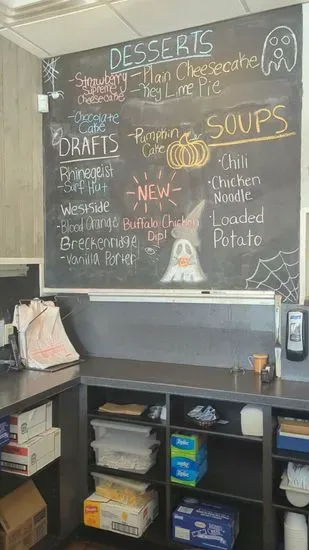 DESSERTS
-Strawberry
Supreme
Cheesecake
-Plain Cheesecake
-Key Lime Pie
-Chocolate
Cake
-Pumpkin
Cake
DRAFTS
Rhinegeist
-Surf Hut
Westside
-Blood Orange
Breckenridge
-Vanilla Porter
NEW
Buffalo Chicken
Dip!
SOUPS
·Chili
·Chicken
Noodle
·Loaded
Potato
Ziploc
Ziploc